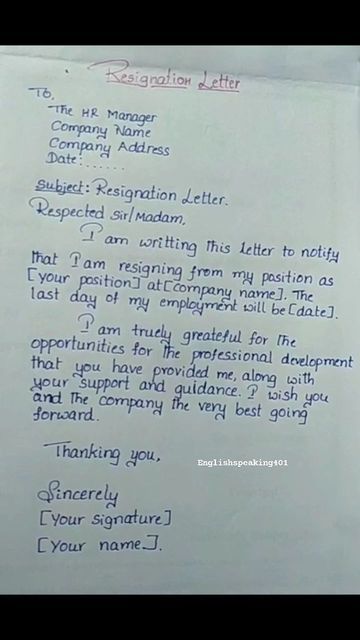 Resignation Letter
To,
The HR Manager
Company Name
Company Address
Date:......
Subject: Resignation Letter.
Respected Sir/Madam,
I am writting this letter to notify
that I am resigning from my position as
[your position] at [company name]. The
last day of my employment will be [date].
I am truely greateful for the
opportunities for the professional development
that you have provided me, along with
your support and guidance. I wish you
and the company the very best going
forward.
Thanking you,
Englishspeaking401
Sincerely
[your signature]
[your name.].